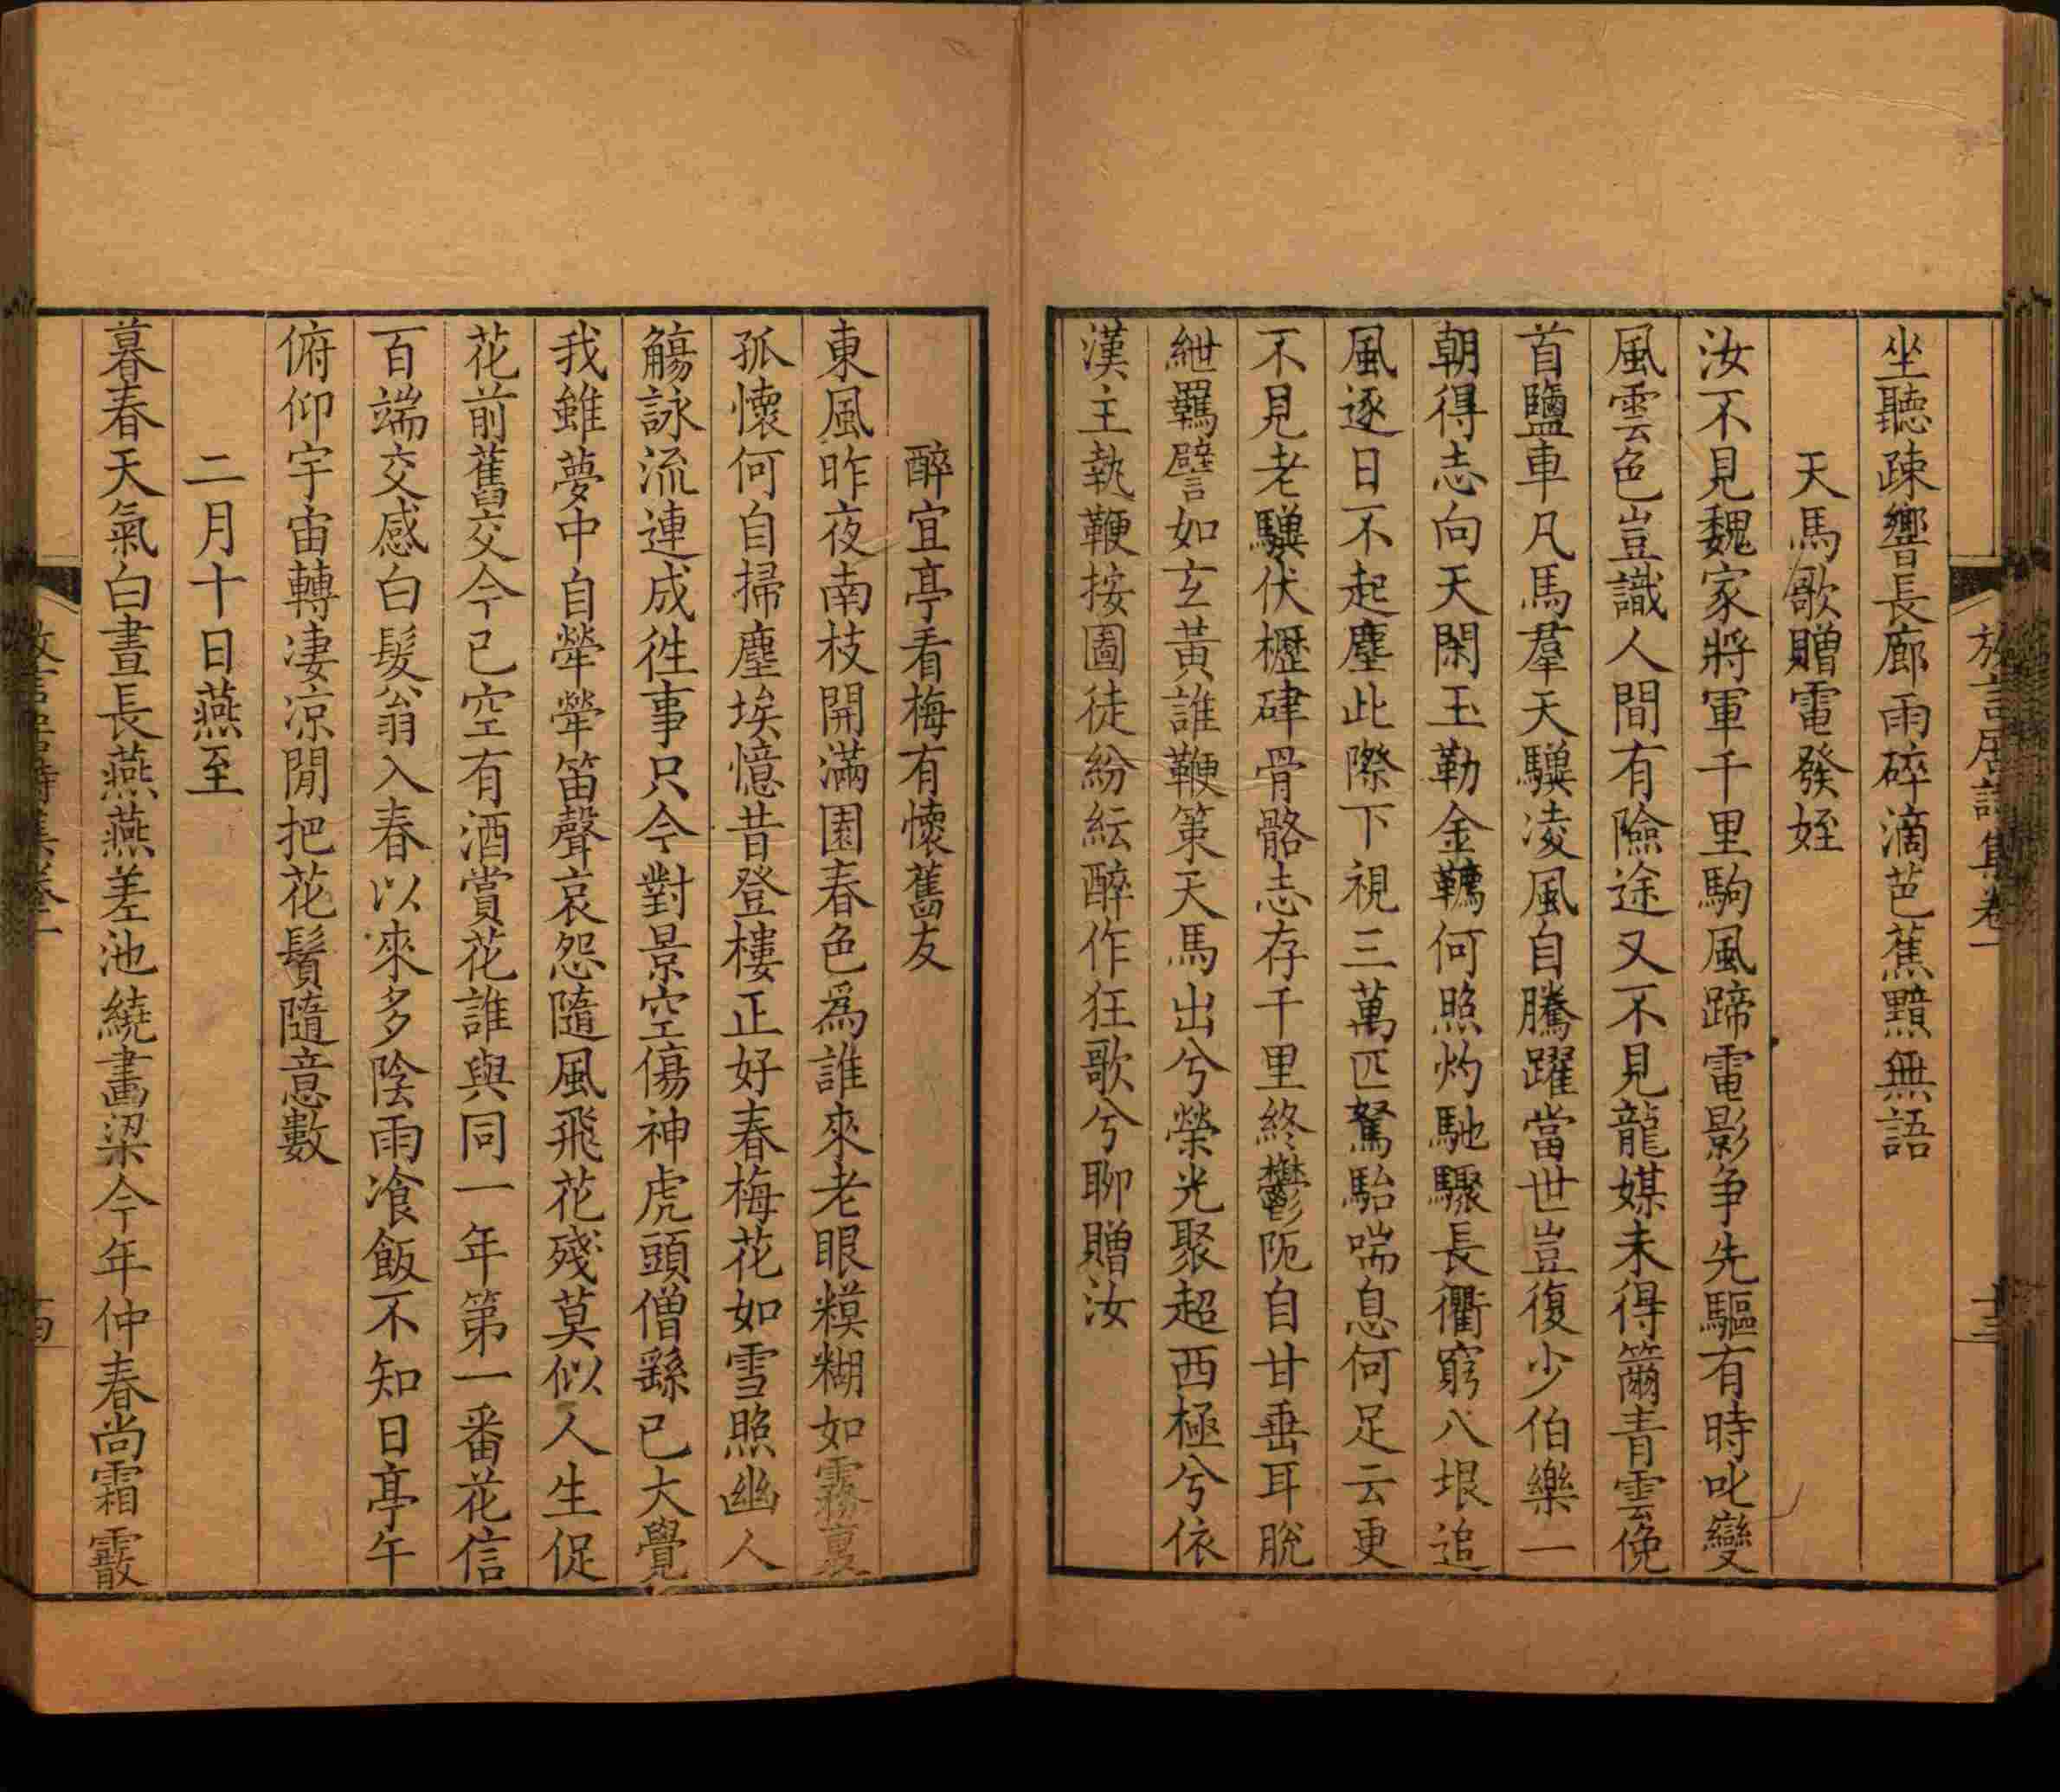 放言居詩集卷一
十三
坐聽疎響長廊雨碎滴芭蕉黯無語
天馬歌贈電發姪
汝不見魏家將軍千里駒風蹄電影爭先驅有時叱變
風雲色豈識人間有險途又不見龍媒未得籋青雲俛
首鹽車凡馬羣天驥凌風自騰躍當世豈復少伯樂一
朝得志向天閑玉勒金韉何照灼馳驟長衢窮八垠追
風逐日不起塵此際下視三萬匹駑駘喘息何足云更
不見老驥伏櫪硉骨骼志存千里終鬱阨自甘垂耳脫
紲羈譬如玄黃誰鞭策天馬出兮榮光聚超西極兮依
漢主執鞭按圖徒紛紜醉作狂歌兮聊贈汝
醉宜亭看梅有懷舊友
東風昨夜南枝開滿園春色爲誰來老眼糢糊如霧裏
孤懷何自掃塵埃憶昔登樓正好春梅花如雪照幽人
觴詠流連成徃事只今對景空傷神虎頭僧繇已大覺
我雖夢中自犖犖笛聲哀怨隨風飛花殘莫似人生促
花前舊交今已空有酒賞花誰與同一年第一番花信
百端交感白髮翁入春以來多陰雨飡飯不知日亭午
俯仰宇宙轉凄凉閒把花鬚隨意數
二月十日燕至
暮春天氣白晝長燕燕差池繞畵梁今年仲春尚霜霰
放言居詩集卷一
十四